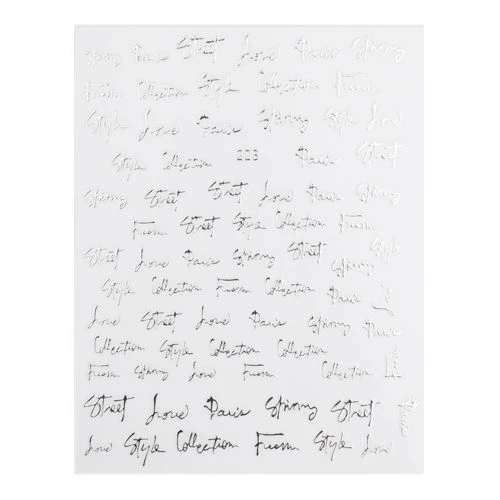 Spinny Paris Street Love Paris Spinny
From Collection Style Collection From
Style Love Paris Spinny Street Style Love
Style Collection 223 Paris Street
Spinny Street Street Love Paris Spinny
From Street Style Collection From
Street Love Paris Spinny Street Spinny Style
Style Collection From Collection Paris
Love Street Love Paris Spinny Paris
Collection Style Collection Collection
From Spinny Love From Collection
Street Love Paris Spinny Street Paris
Love Style Collection From Street Style Love